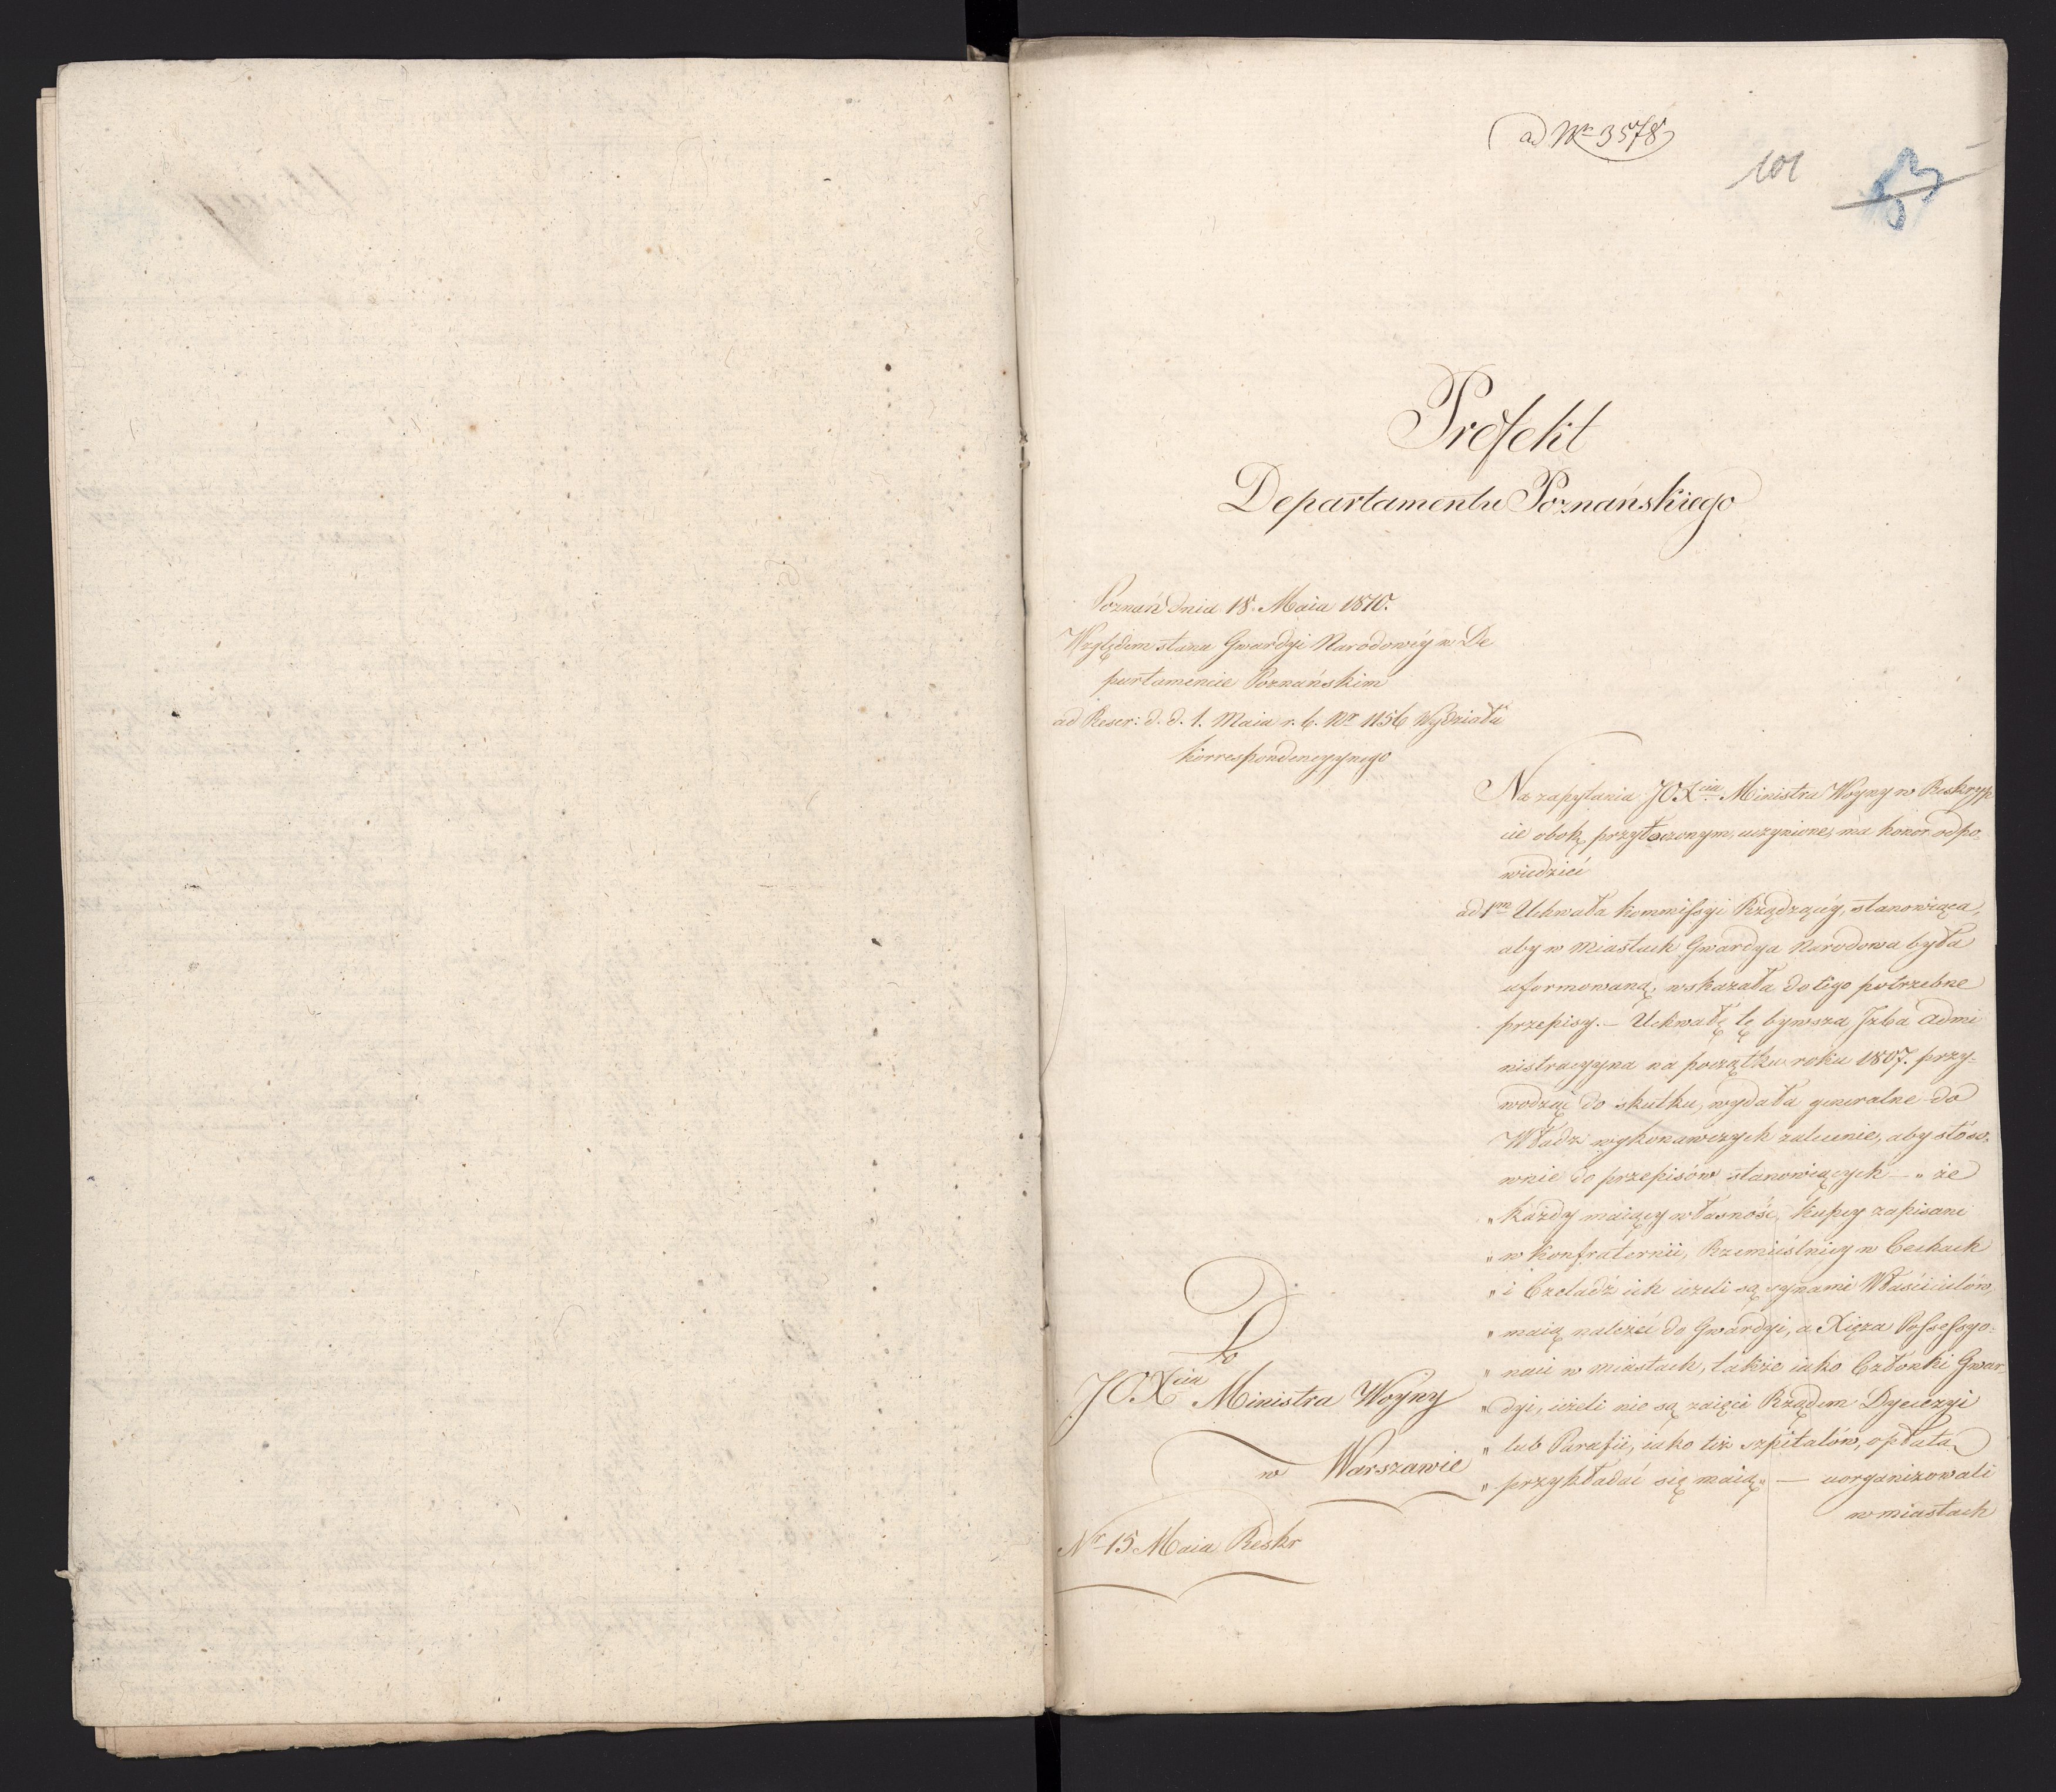 ad Nr 3578
101
53
Prefekt
Departamentu Poznańskiego
Poznań dnia 18. Maia 1810.
Względem stanu Gwardyi Narodowéy w De
partamencie Poznańskim
ad Rescr: d. d. 1. Maia r. b. Nr 1156 Wydziału
korrespondencyynego
Na zapytania JOXcia Ministra Woyny w Reskryp
cie obok przytoczonym, uczynione, ma honor odpo-
wiedzieć
ad 1m Uchwała Kommissyi Rządzącéy, stanowiąca,
aby w Miastach Gwardya Narodowa była
uformowaną, wskazała do tego potrzebne
przepisy. — Uchwałę tę bywsza Jzba Admi
nistracyyna na początku roku 1807. przy-
wodząc do skutku, wydała generalne do
Władz wykonawczych zalecenie, aby stosow.
wnie do przepisów stanowiących — „ że
„ każdy maiący własność, kupcy zapisani
„ w Konfraternii, Rzemieślnicy w Cechach
„ i Czeladź ich ieżeli są synami Właścicielów,
„ maią należeć do Gwardyi, a Xięża Possessyo-
„ naci w miastach, także iako Członki Gwar-
„ dyi, ieżeli nie są zaięci Rządem Dyecezyi
„ lub Parafii, iako też szpitalów, opłatą
„ przykładać się maią „ — uorganizowali
w miastach
Do
JOXcia Ministra Woyny
w Warszawie
Nr 15 Maia Reskr